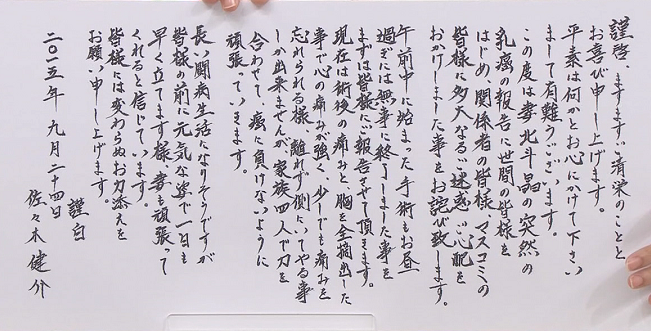 謹啓 ますます、ご清栄のことと
お喜び申し上げます。
平素は何かとお心にかけて下さい
まして有難うございます。
この度は妻北斗晶の突然の
乳癌の報告に世間の皆様を
はじめ、関係者の皆様、マスコミの
皆様に多大なるご迷惑、ご心配を
おかけしました事をお詫び致します。
午前中に始まった手術もお昼
過ぎには無事に終了しました事を
まずは皆様にご報告させて頂きます。
現在は術後の痛みと、胸を全摘出した
事で心の痛みが強く、少しでも痛みを
忘れられる様、離れず側にいてやる事
しか出来ませんが、家族四人で力を
合わせて、癌に負けないように
頑張っていきます。
長い闘病生活になりそうですが
皆様の前に元気な姿で一日も
早く立てます様、妻も頑張って
くれると信じています。
皆様には変わらぬお力添えを
お願い申し上げます。
謹白
二〇一五年 九月二十四日
佐々木健介